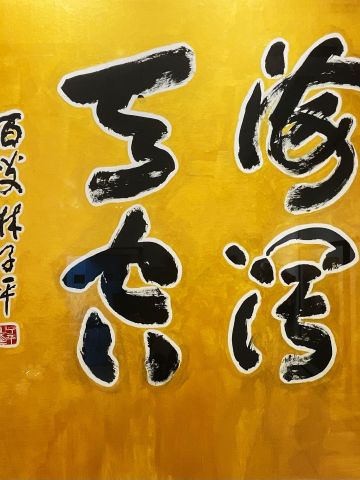 海阔
天空
百岁林子平